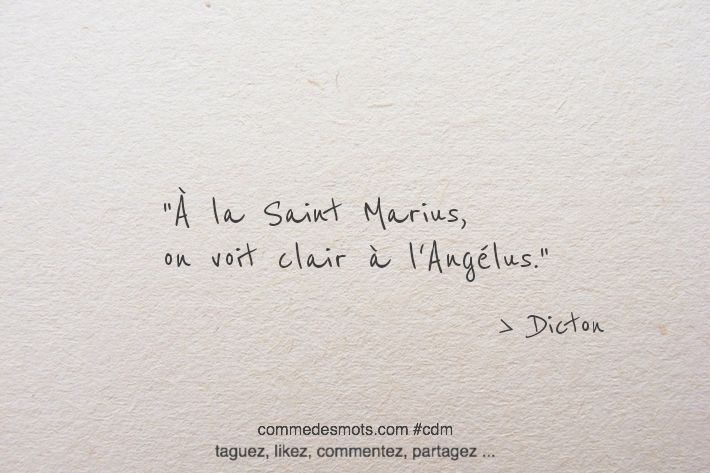 "À la Saint Marius,
on voit clair à l'Angélus."
> Dicton
commedesmots.com #cdm
taguez, likez, commentez, partagez ...